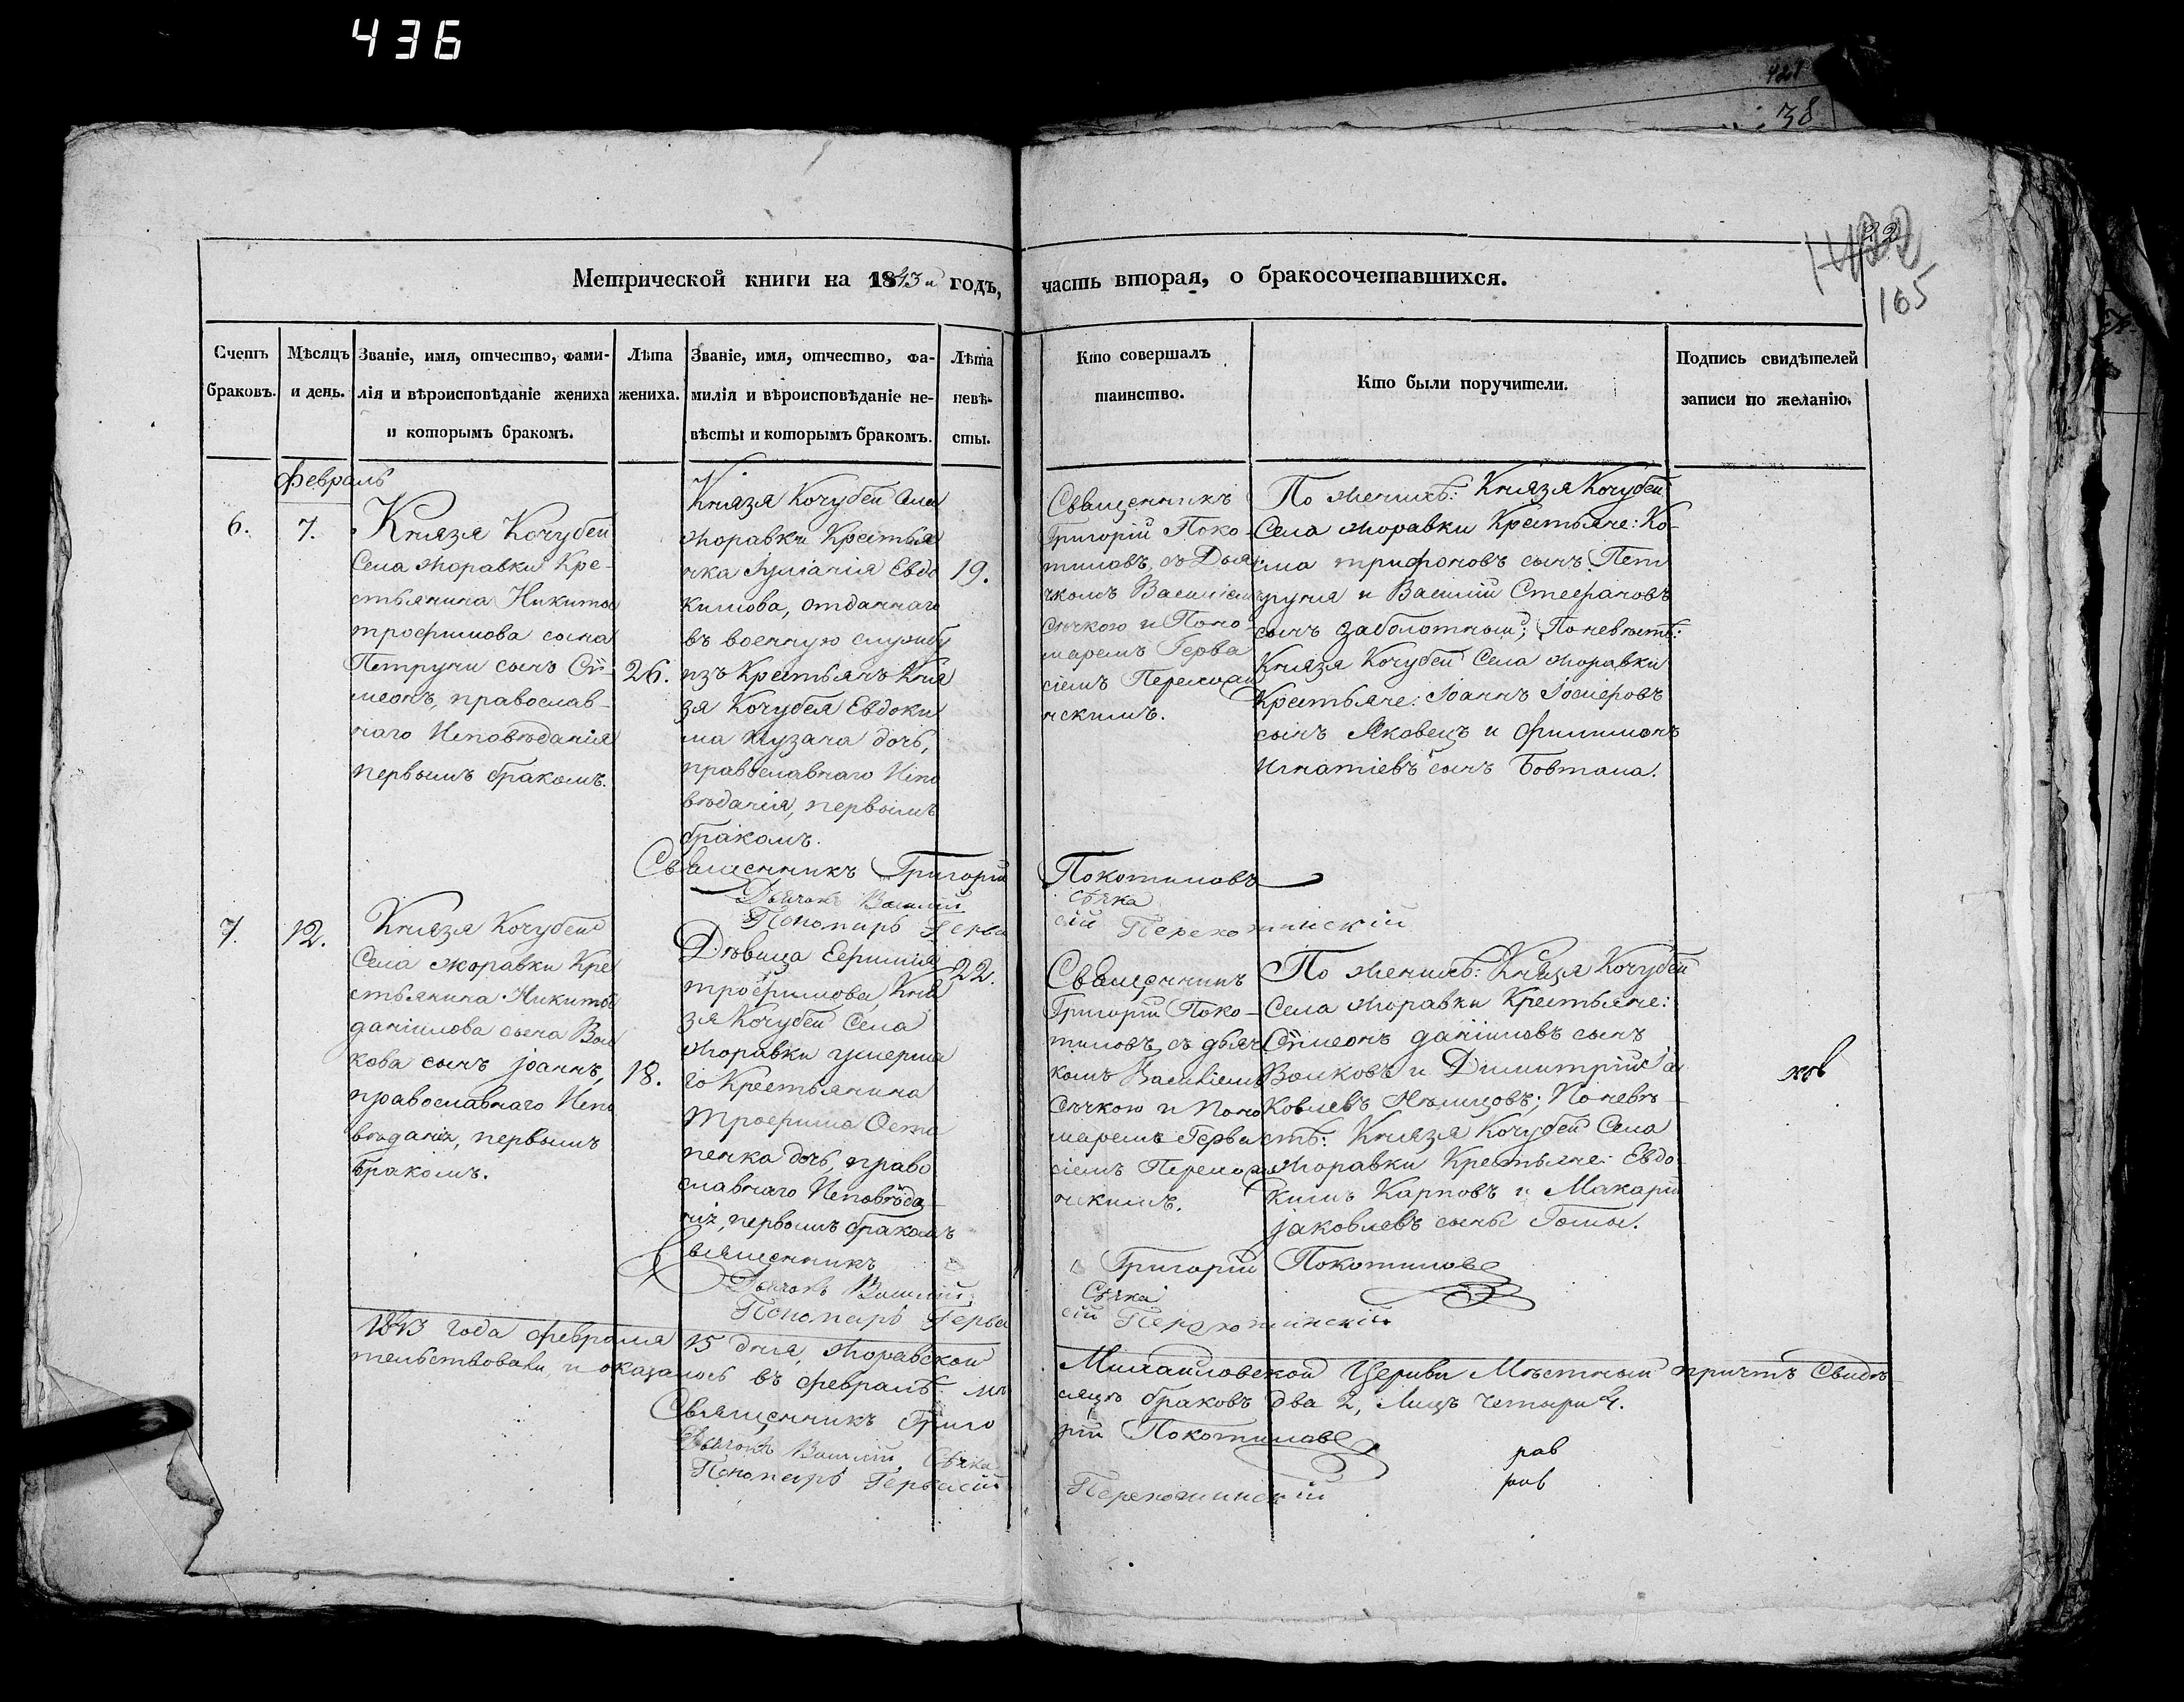 436
421
38
22
165
Метрической книги на 1843й годъ, часть вторая, о бракосочетавшихся.
Счетъ браковъ.
Мѣсяцъ и день.
Званіе, имя, отчество, фами-
лія и вѣроисповѣданіе жениха
и которымъ бракомъ.
Лѣта
жениха.
Званіе, имя, отчество, фа-
милія и вѣроисповѣданіе не-
вѣсты и которымъ бракомъ.
Лѣта
невѣ-
сты.
Кто совершалъ
таинство.
Кто были поручители.
Подпись свидѣтелей
записи по желанію.
Февраль
6.
7.
Князя Кочубей
Села Жоравки Кре-
стьянина Никиты
трофимова сына
Петруни сынъ Сѵ-
меонъ, православ-
наго Исповѣданія
первымъ бракомъ.
26.
Князя Кочубей Села
Жоравки Крестья
нка Іуліанія Евдо
кимова, отданнаго
въ военную службу
изъ Крестьянъ Кня
зя Кочубея Евдоки
ма дочь,
православнаго Испо
вѣданія, первымъ
бракомъ.
19.
Священникъ
Григорій Поко-
тиловъ, съ Дья
чкомъ Василіемъ
Сѣчкою и Поно-
маремъ Герва
сіемъ
нскимъ.
По женихѣ: Князя Кочубей
Села Жоравки Крестьяне: Ко-
сма трифоновъ сынъ Пет
руня и Василій Стефановъ
сынъ Заболотный; По невѣстѣ:
Князя Кочубей Села Жоравки
Крестьяне: Іоаннъ Іосифовъ
сынъ Яковецъ и Филимонъ
Игнатіевъ сынъ Бовтала.
Священникъ Григорій Покотиловъ
Дьячокъ Василій Сѣчка
Пономарь Гервасій
7.
12.
Князя Кочубей
Села Жоравки Кре
стьянина Никиты
даніилова сына Вол
кова сынъ Іоаннъ,
православнаго Испо
вѣданія, первымъ
бракомъ.
18.
Дѣвица Ефимія
трофимова, Кня
зя Кочубей Села
Жоравки умерша
го Крестьянина
Трофима Оста
пенка дочь, право
славнаго Исповѣда
нія, первымъ бракомъ
22.
Священникъ
Григорій Поко-
тиловъ, съ дьяч
комъ Василіемъ
Сѣчкою и Поно
маремъ Герва
сіемъ
нскимъ.
По женихѣ: Князя Кочубей
Села Жоравки Крестьяне:
Сѵмеонъ даніиловъ сынъ
Волковъ и Димитрій Іа
ковлевъ; По невѣ-
стѣ: Князя Кочубей Села
Жоравки Крестьяне: Евдо
кимъ Карповъ и Макарій
Іаковлевъ сыны Гомы.
Священникъ Григорій Покотиловъ
Дьячокъ Василій Сѣчка
Пономарь Гервасій
1843 года февраля 15 дня, Жоравской Михаиловской Церкви Мѣстный причтъ Свидѣ-
тельствовали, и оказалось въ февралѣ мѣ
сяцѣ браковъ два 2, Лицъ Четыри 4.
Священникъ Григо
рій Покотиловъ
Дьячокъ Василій Сѣчка
Пономарь Гервасій